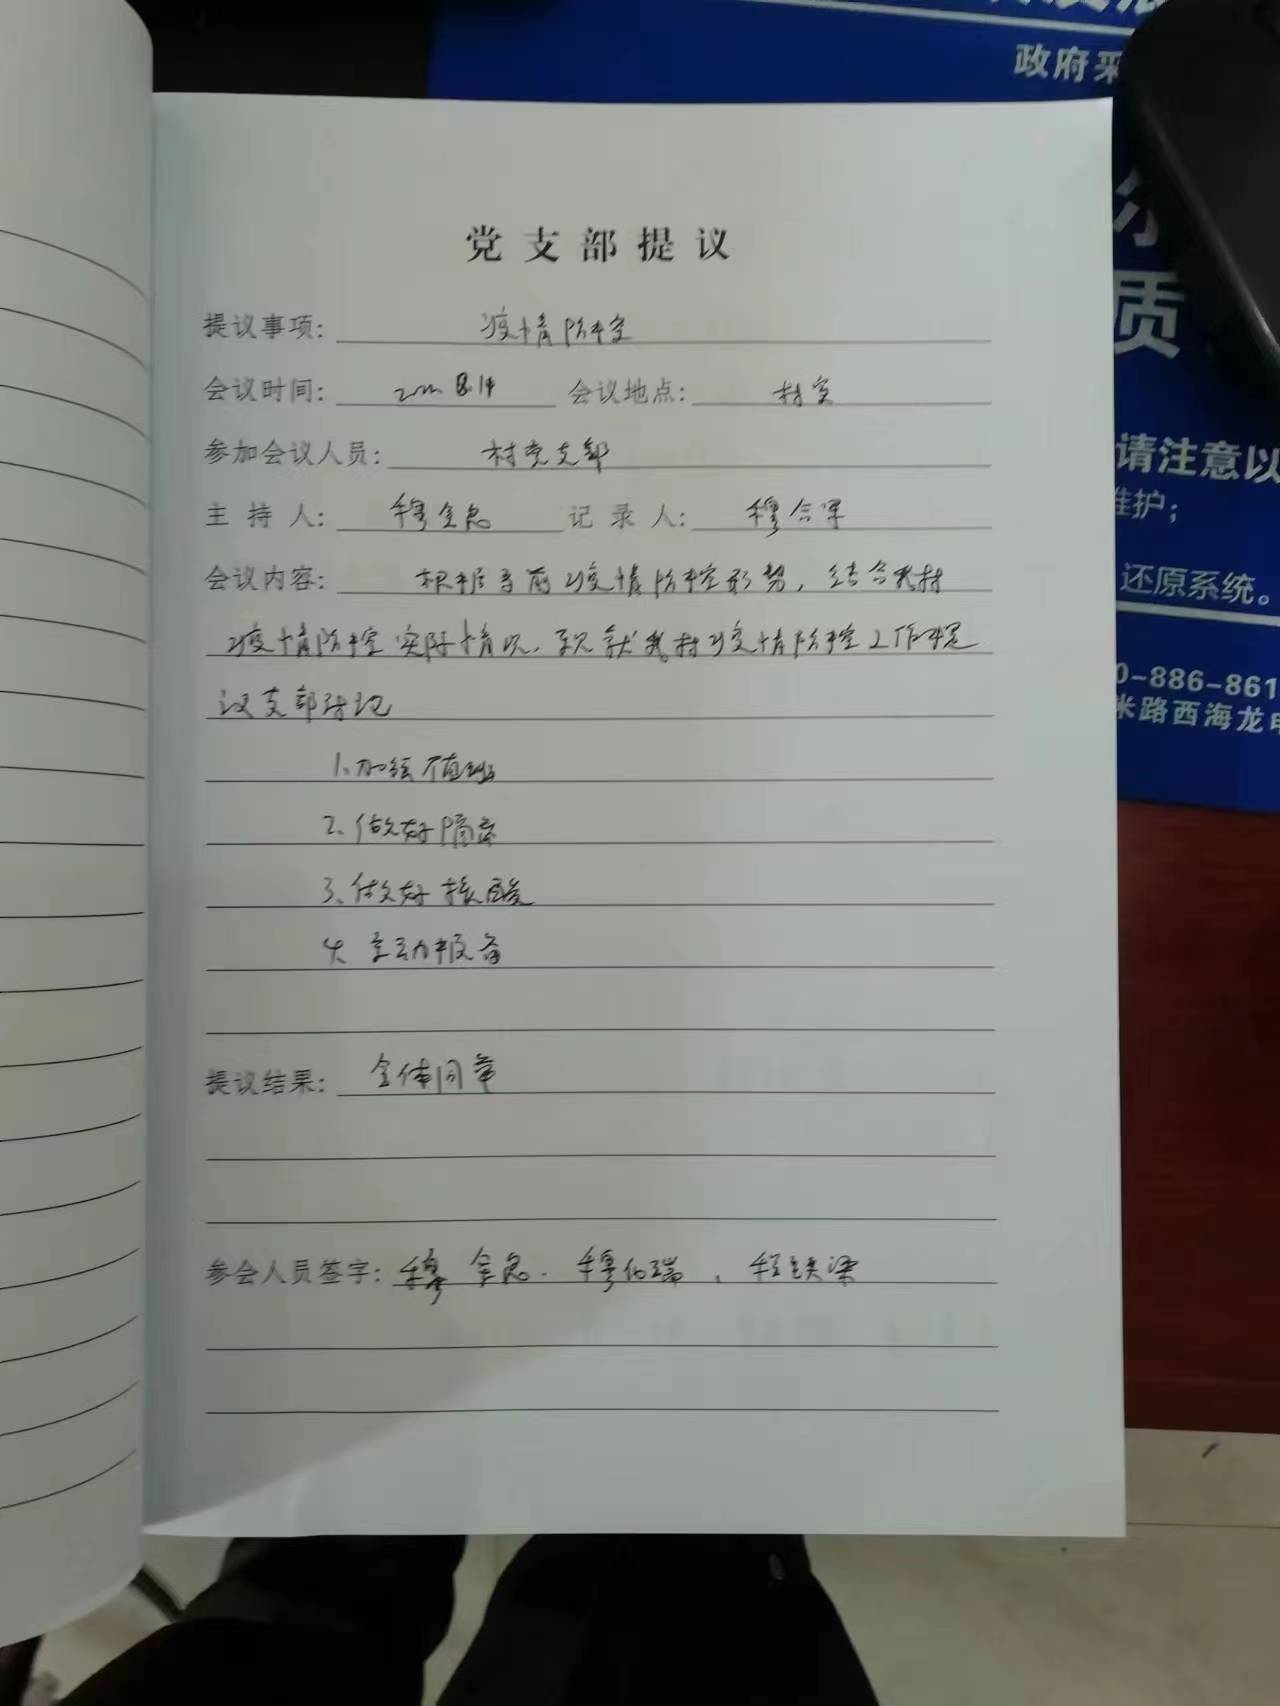 政府采
质
请注意以
维护；
还原系统。
0-886-861
米路西海龙电
党支部提议
提议事项： 疫情防控
会议时间： 8.14 会议地点： 村室
参加会议人员： 村党支部
主持人： 穆全忠 记录人： 穆合军
会议内容： 根据当前疫情防控形势，结合我村
疫情防控实际情况，现就我村疫情防控工作提
议支部讨论
1、加强值班
2、做好隔离
3、做好核酸
4、主动报备
提议结果： 全体同意
参会人员签字： 穆全忠、穆伯瑞、程铁梁